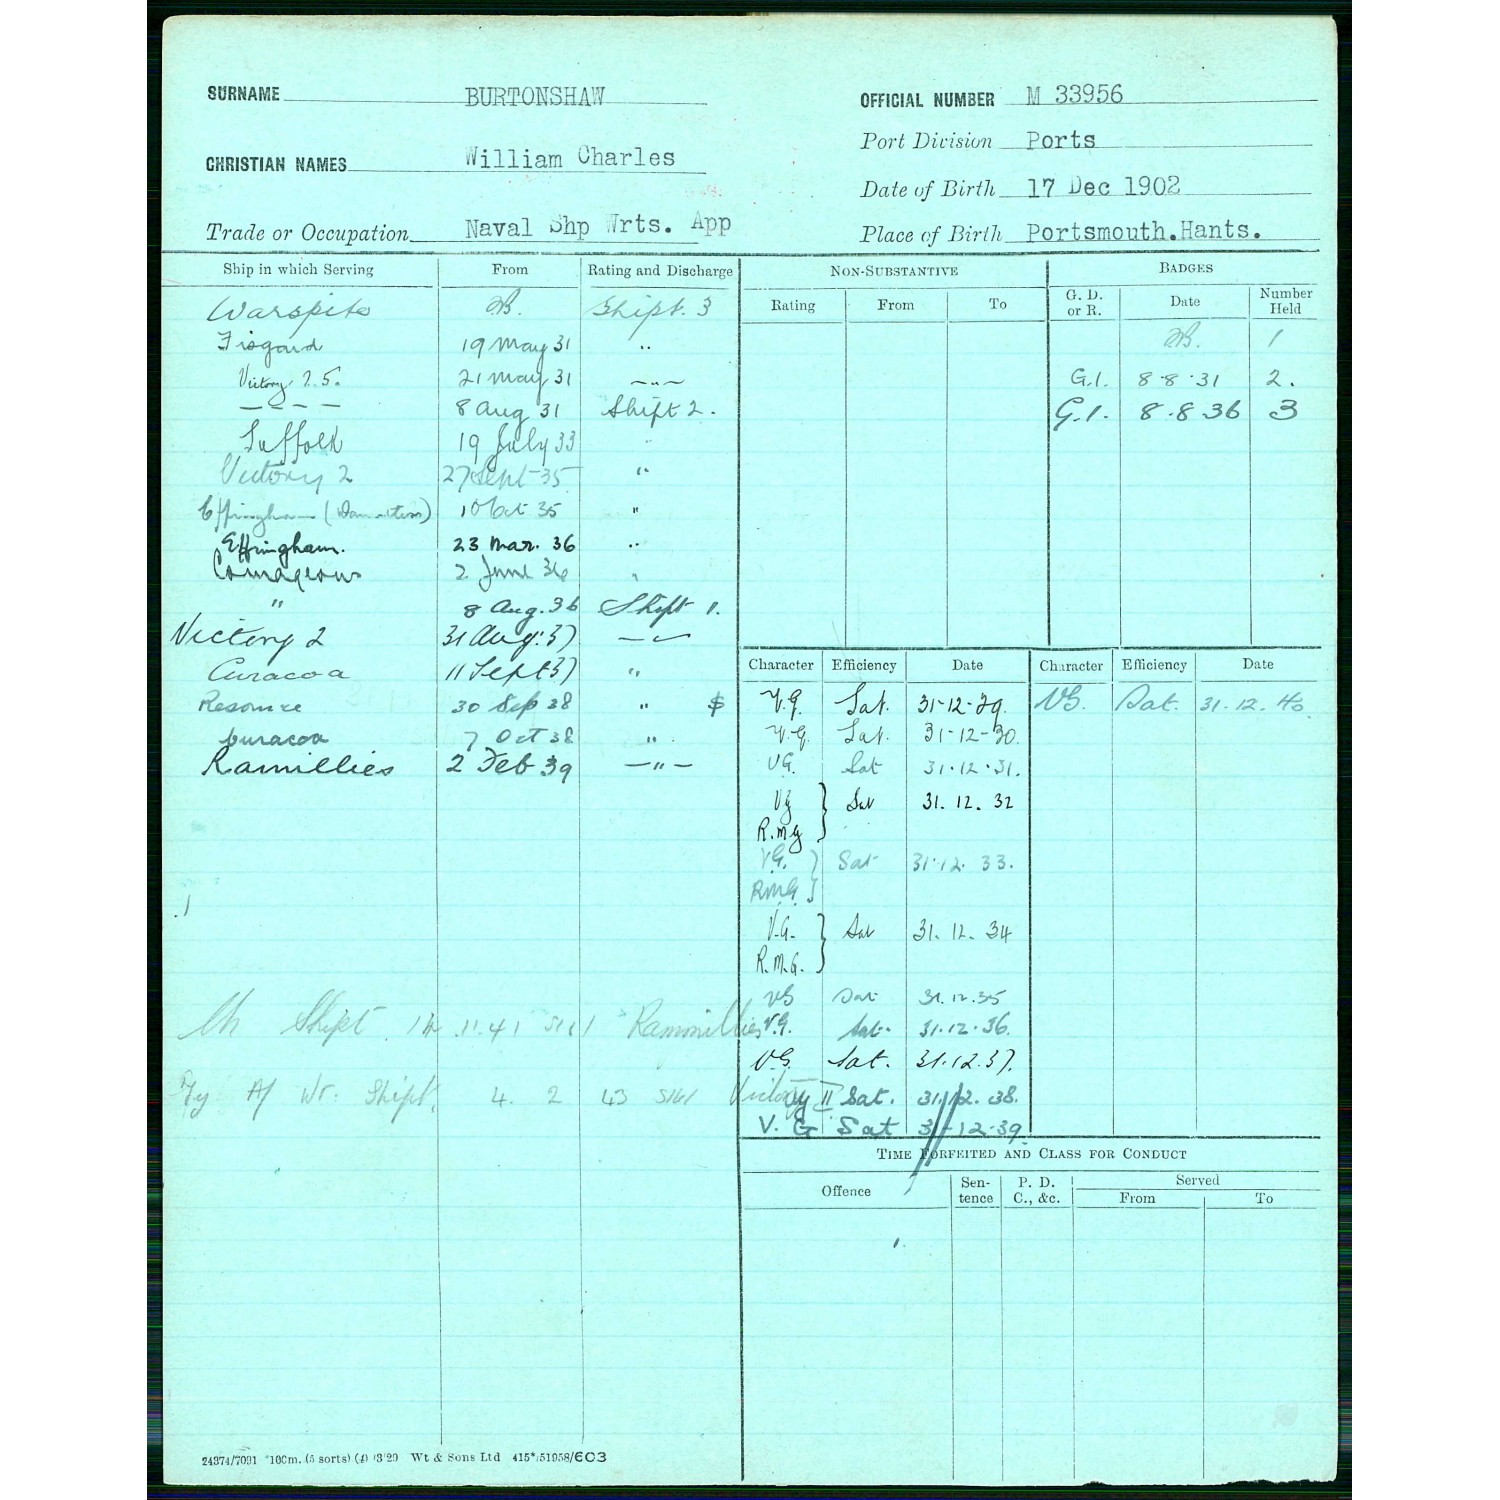 SURNAME BURTONSHAW
OFFICIAL NUMBER M 33956
Port Division Ports
CHRISTIAN NAMES William Charles
Date of Birth 17 Dec 1902
Trade or Occupation Naval Shp Wrts. App
Place of Birth Portsmouth.Hants.
Ship in which Serving From Rating and Discharge
Warspite Shipt. 3
Fisgard 19 May 31 "
Victory 2.5. 21 May 31 — " —
— — — — 8 Aug 31 Shipt 2.
Suffolk 19 July 33 "
Victory 2 27 Sept 35 "
Effingham ( 1 Oct 35 "
Effingham. 23 Mar. 36 "
Courageous 2 June 36 "
" 8 Aug. 36 Shipt 1.
Victory 2 31 Aug: 37 — " —
Curacoa 11 Sept 37 "
Resource 30 Sep 38 " $
Curacoa 7 Oct 38 "
Ramillies 2 Feb 39 — " —
Ch Shipt 11.41 Rammillies
A/ Wt: Shipt. 4. 2 43 Victory II
NON-SUBSTANTIVE
Rating From To
BADGES
G. D. or R. Date Number Held
1
G.1. 8·8·31 2.
G.1. 8.8.36 3
Character Efficiency Date Character Efficiency Date
V.G. Sat. 31-12-29. VG. Sat. 31.12.40.
V.G. Sat. 31-12-30.
VG. Sat 31·12·31.
VG } Sat 31.12.32
R.M.G
V.G. } Sat 31·12.33.
RMG.
V.G. } Sat 31.12.34
R.M.G.
VG Sat 31.12.35
V.G. Sat. 31.12.36.
VG. Sat. 31.12.37.
Sat. 31.12.38.
V. G Sat 31-12-39.
TIME FORFEITED AND CLASS FOR CONDUCT
Offence Sentence P. D. C., &c. Served
From To
24374/7091 *100m. (5 sorts) (4) 3/29 Wt & Sons Ltd 415*/51958/603